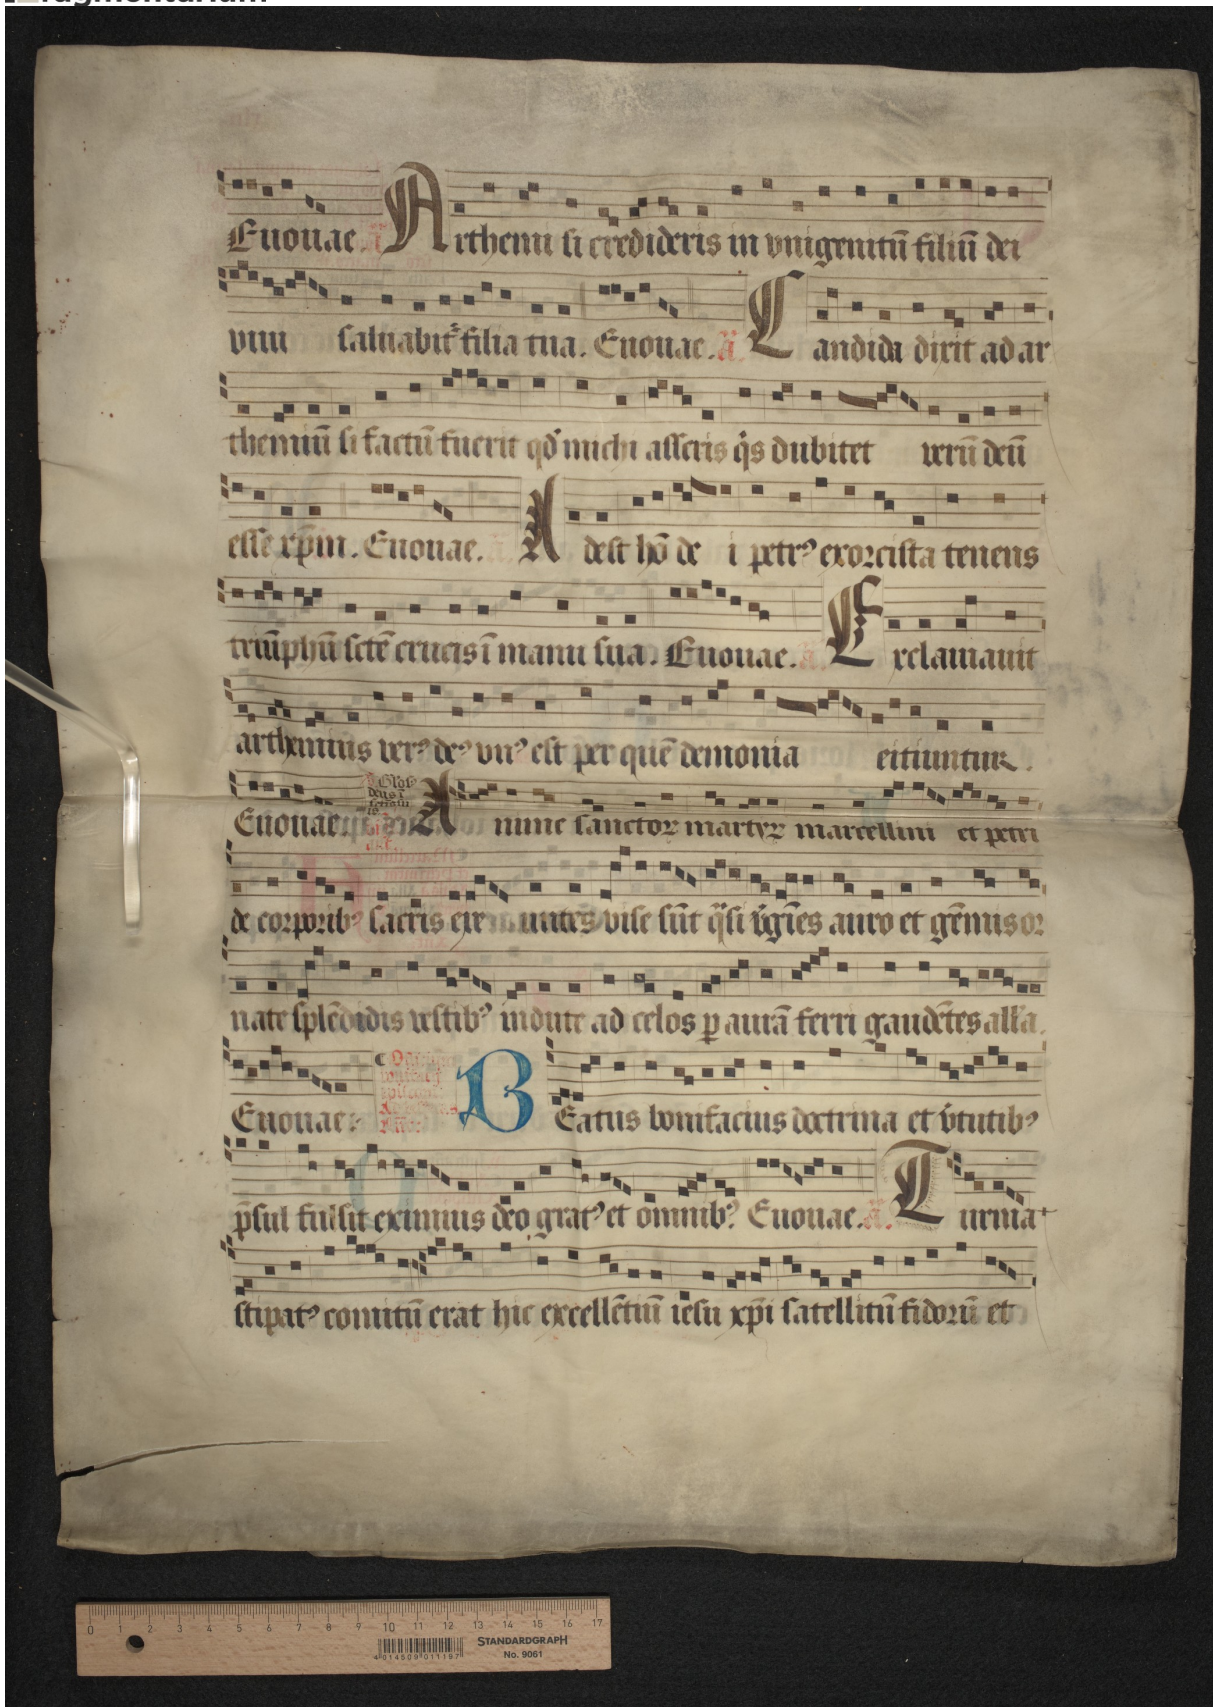 Euouae. Arthemi si credideris in vnigenitū filiū dei
viuū saluabit᷑ filia tua. Euouae. Candida dixit ad ar
themiū si factū fuerit qd̕ michi asseris q̕s dubitet verū deū
esse xp̄m. Euouae. Adest hō de i petrꝰ exorcista tenens
triūphū sctē crucis ī manu sua. Euouae. Exclamauit
arthemius verꝰ deꝰ vnꝰ est per quē demonia eitiuntur.
Euouae A nime sanctoꝝ martyꝝ marcellini et petri
de corporibꝰ sacris exeuntes vise sūt q̄si v̄gīes auro et gēmis or
nate splēdidis vestibꝰ indute ad celos p aurā ferri gaudētes all'a.
Euouae. BEatus bonifacius doctrina et v̄tutibꝰ
p̄sul fulsit eximius deo gratꝰ et omnibꝰ. Euouae. Turma
stipatꝰ comitū erat hic excellētiū iesu xp̄i satellitū fidorū et
STANDARDGRAPH
No. 9061